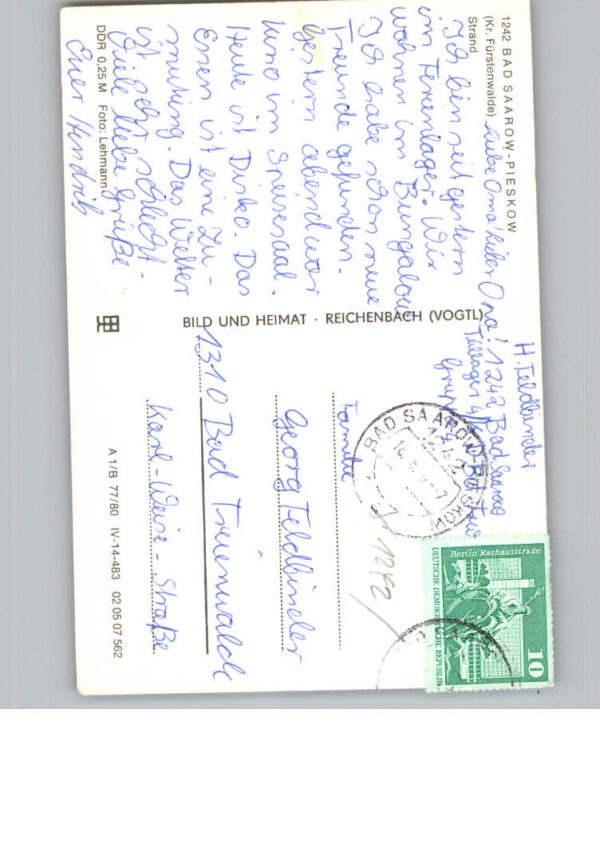 1242 BAD SAAROW-PIESKOW
(Kr. Fürstenwalde)
Strand
Liebe Oma! Lieber Opa!
Ich bin seit gestern
im Ferienlager. Wir
wohnen im Bungalow
Ich habe schon neue
Freunde gefunden.
Gestern abend war
Kino im Speisesaal.
Heute ist Disko. Das
Essen ist eine Zu-
mutung. Das Wetter
ist sehr schlecht.
Viele liebe Grüße
Euer Hendrik
DDR 0,25 M Foto: Lehmann
BILD UND HEIMAT · REICHENBACH (VOGTL)
H. Feldbinder
1242 Bad Saarow
BAD SAAROW-PIESKOW
1242
Berlin-Rathausstraße
DEUTSCHE DEMOKRATISCHE REPUBLIK
10
1242
Familie
Georg Feldbinder
1310 Bad Freienwalde
Karl-Weise-Straße
A 1/B 77/80 IV-14-483 02 05 07 562